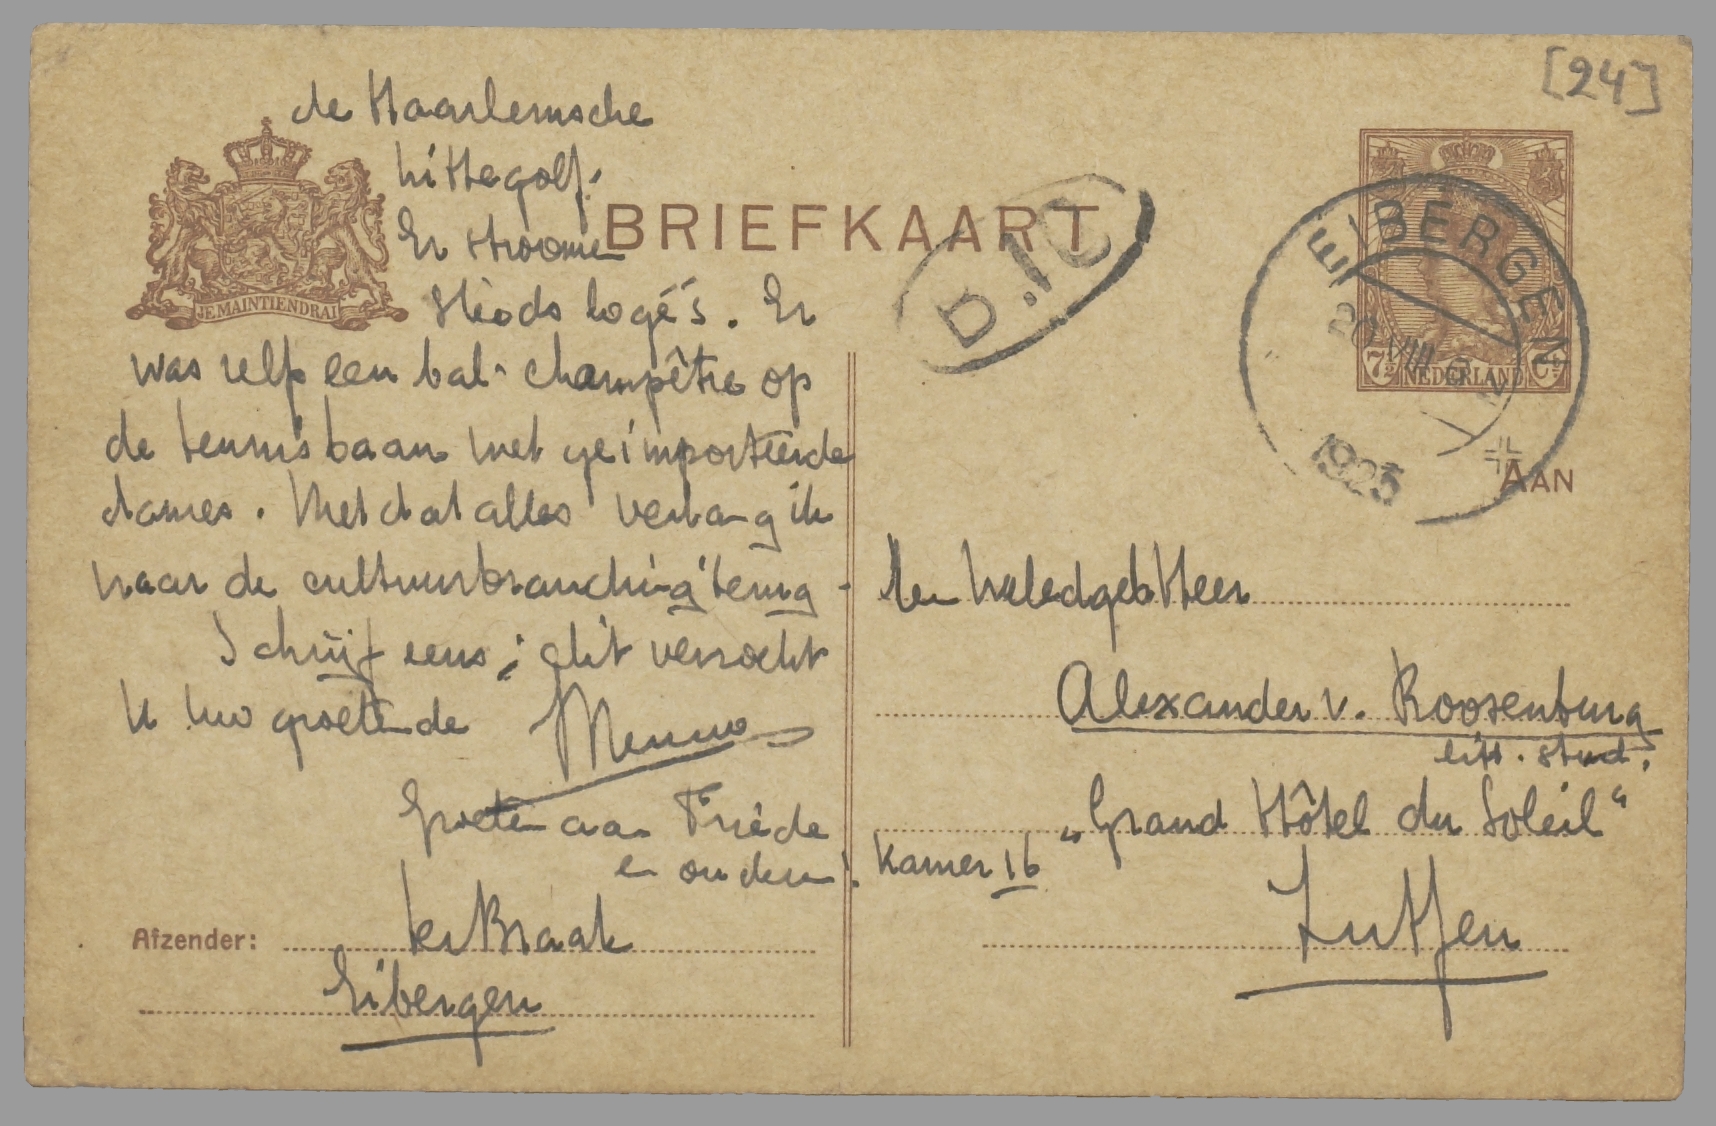 [24]
de Haarlemsche
hittegolf.
Er stroomen
steeds logé's. Er
was zelfs een bal-champêtre op
de tennisbaan met geïmporteerde
dames. Met dat al verlang ik
naar de cultuurbranding terug.
Schrijf eens; dit verzoekt
U uw groetende Menno
Groeten aan Friède
en ouders!
Afzender: ter Braak
Eibergen
JE MAINTIENDRAI
BRIEFKAART
B.IC
EIBERGEN
1925
7½ NEDERLAND 7½
AAN
Den Weledgeb Heer
Alexander v. Roosenburg
litt. stud.
„Grand Hôtel du Soleil“
Kamer 16
Zutfen